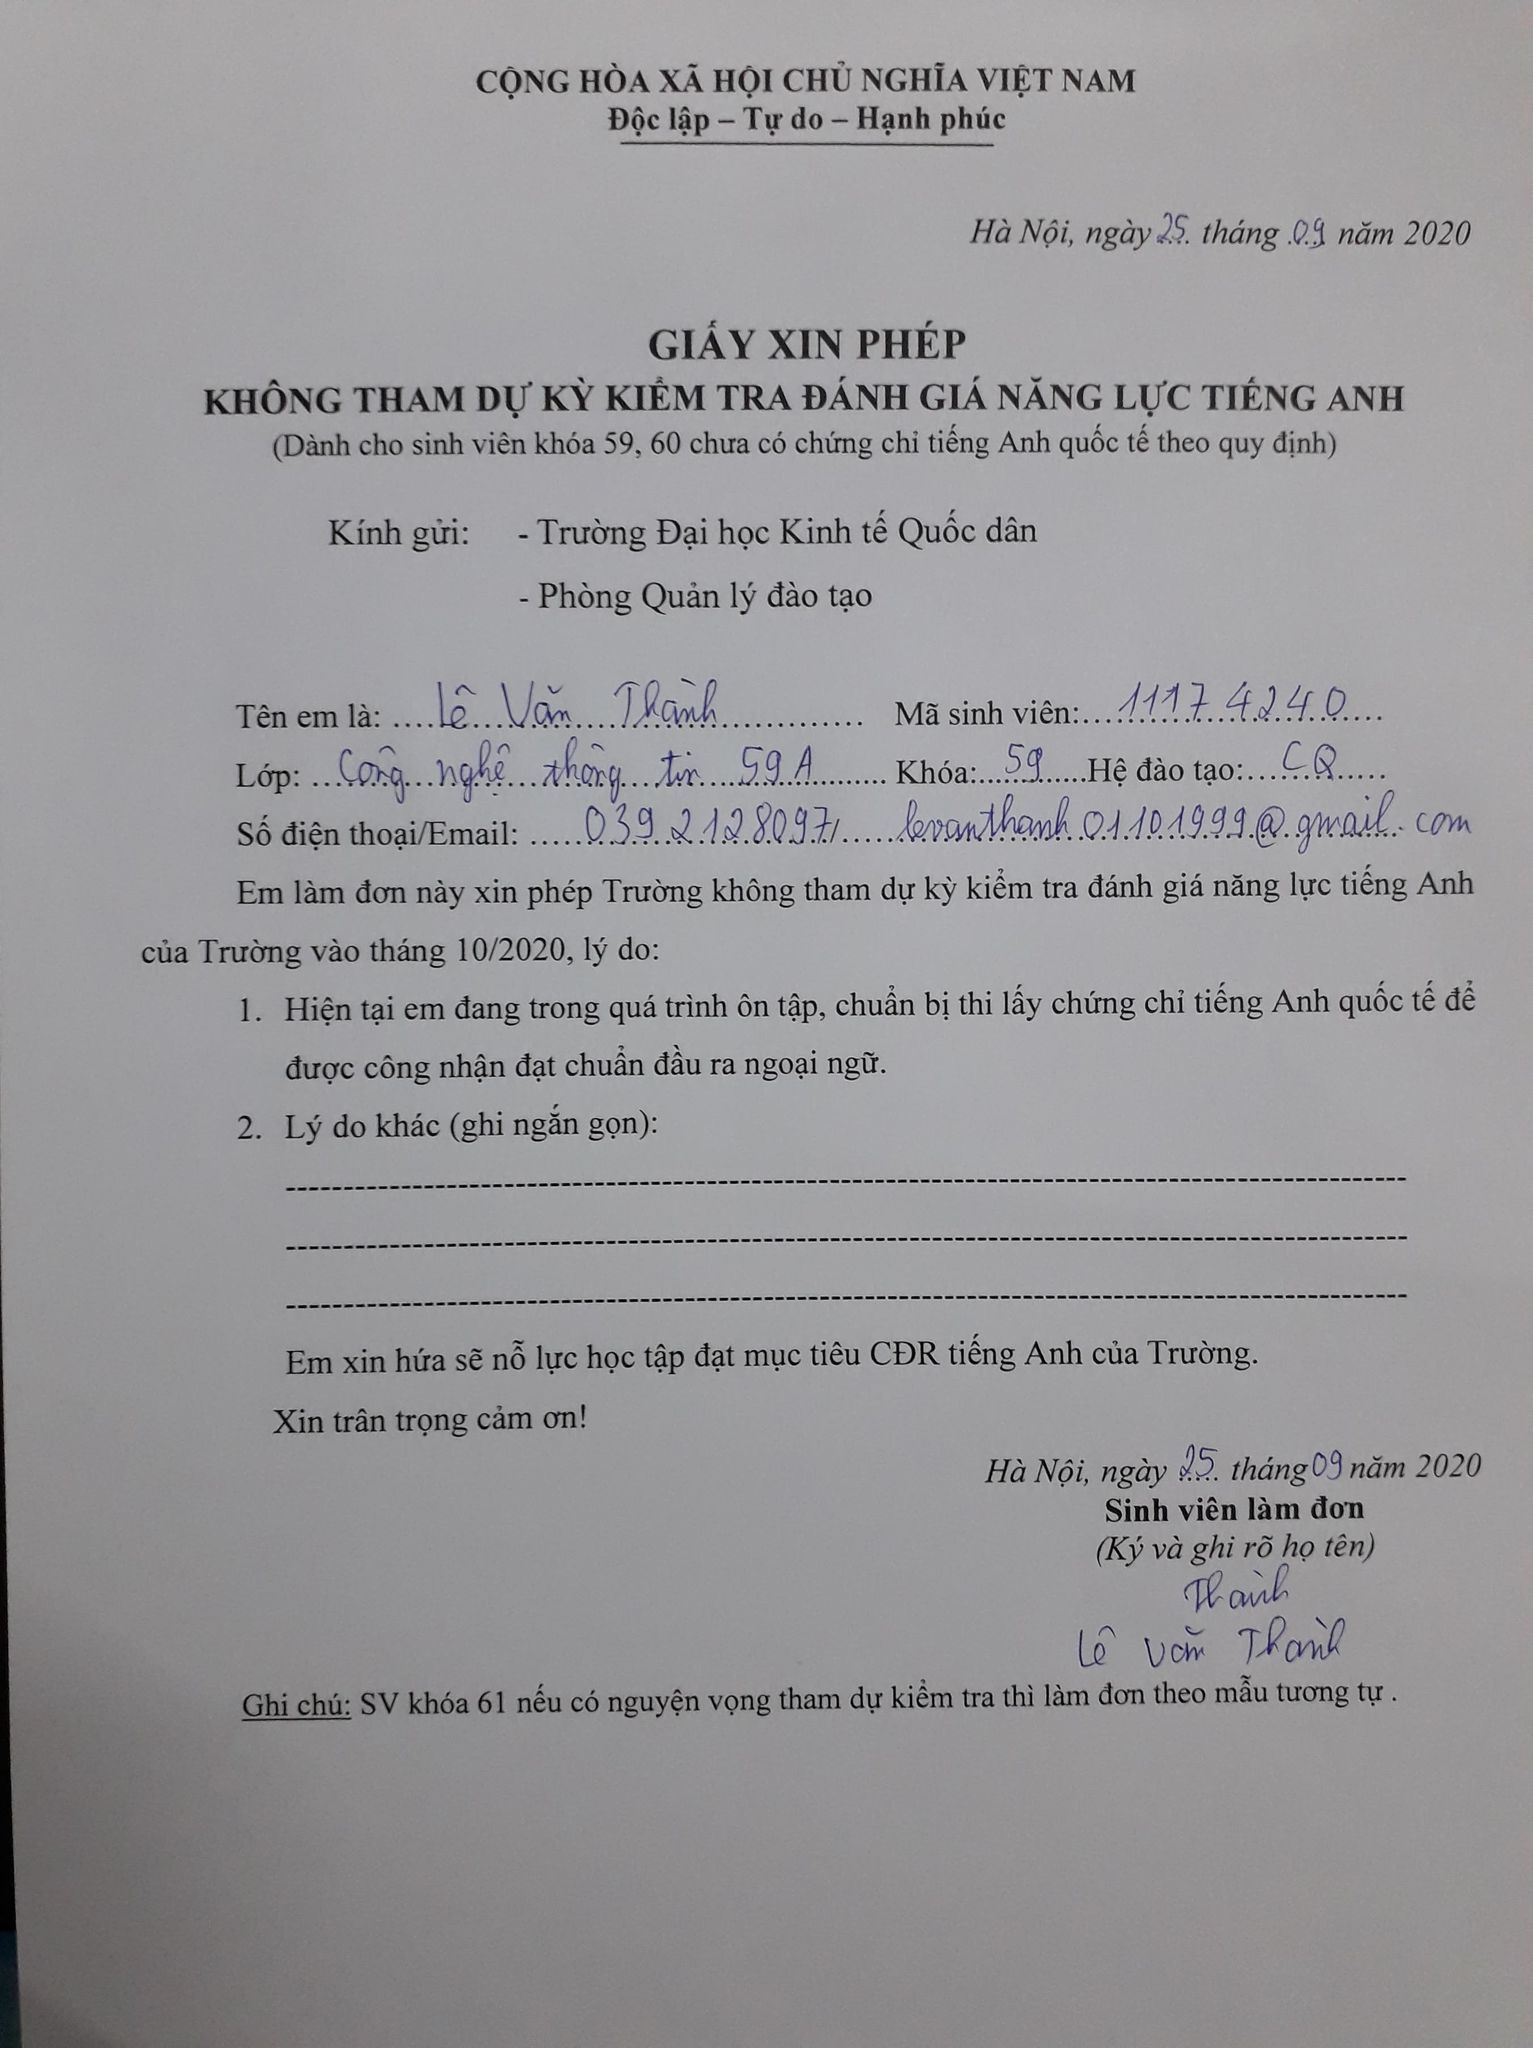 CỘNG HÒA XÃ HỘI CHỦ NGHĨA VIỆT NAM
Độc lập – Tự do – Hạnh phúc
Hà Nội, ngày 25 tháng 09 năm 2020
GIẤY XIN PHÉP
KHÔNG THAM DỰ KỲ KIỂM TRA ĐÁNH GIÁ NĂNG LỰC TIẾNG ANH
(Dành cho sinh viên khóa 59, 60 chưa có chứng chỉ tiếng Anh quốc tế theo quy định)
Kính gửi: - Trường Đại học Kinh tế Quốc dân
- Phòng Quản lý đào tạo
Tên em là: Lê Văn Thành Mã sinh viên: 11174240
Lớp: Công nghệ thông tin 59A Khóa: 59 Hệ đào tạo: CQ
Số điện thoại/Email: 0392128097/ levanthanh01101999@gmail.com
Em làm đơn này xin phép Trường không tham dự kỳ kiểm tra đánh giá năng lực tiếng Anh
của Trường vào tháng 10/2020, lý do:
1. Hiện tại em đang trong quá trình ôn tập, chuẩn bị thi lấy chứng chỉ tiếng Anh quốc tế để
được công nhận đạt chuẩn đầu ra ngoại ngữ.
2. Lý do khác (ghi ngắn gọn):
Em xin hứa sẽ nỗ lực học tập đạt mục tiêu CĐR tiếng Anh của Trường.
Xin trân trọng cảm ơn!
Hà Nội, ngày 25 tháng 09 năm 2020
Sinh viên làm đơn
(Ký và ghi rõ họ tên)
Thành
Lê Văn Thành
Ghi chú: SV khóa 61 nếu có nguyện vọng tham dự kiểm tra thì làm đơn theo mẫu tương tự .